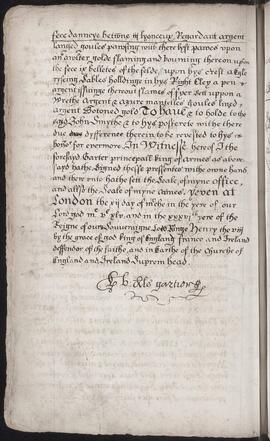 fece banneye betwene iij lyonceux Regardant argent
langed goules pawsing with there left pawes upon
an aulter golde flaming and bourning thereon upon
the fece iij belletes of the felde, upon hys crest a Egle
rysing sables holldinge in hys Right Cley a pen
argent issuinge thereout flames of fyer sett uppon a
Wrethe argent & azure mantelled goules lined
argent Botoned gold To have & to holde to the
said John Smythe & to hys posterite with there
due dyfference therein to be revested to hys
honor for evermore. In Witnesse hereof I the
foresaid Garter principall king of armes as above
said hathe Signed these presentes with owne hand
and there unto hathe sett the Seale of myne office,
and allso the Seale of myne armes. Yeven at
London the xij day of in the yere of our
Lord god m vc xlv. and in the xxxvij yere of the
Reigne of oure Souveraigne Lord Kinge Henry the viij
by the grace of god king of England france and Ireland
deffendor of the faithe, and in Earthe of the Churche of
England and Ireland Suprem head.
garter